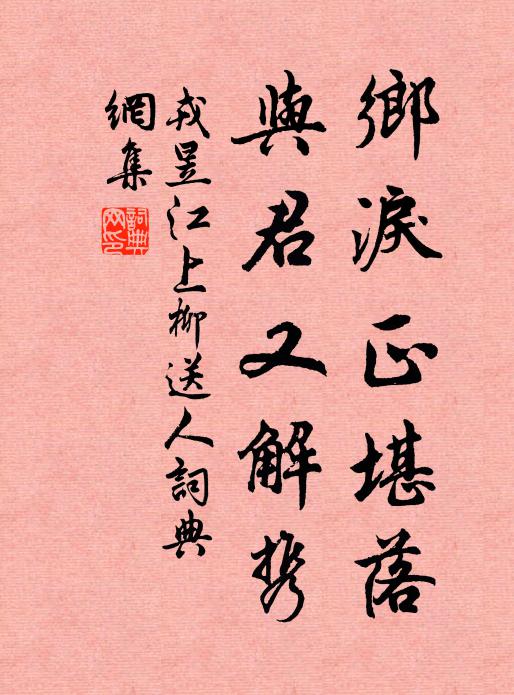 鄉淚正堪落
與君又解携
戎昱江上柳送人詞典
網集
詞典網印